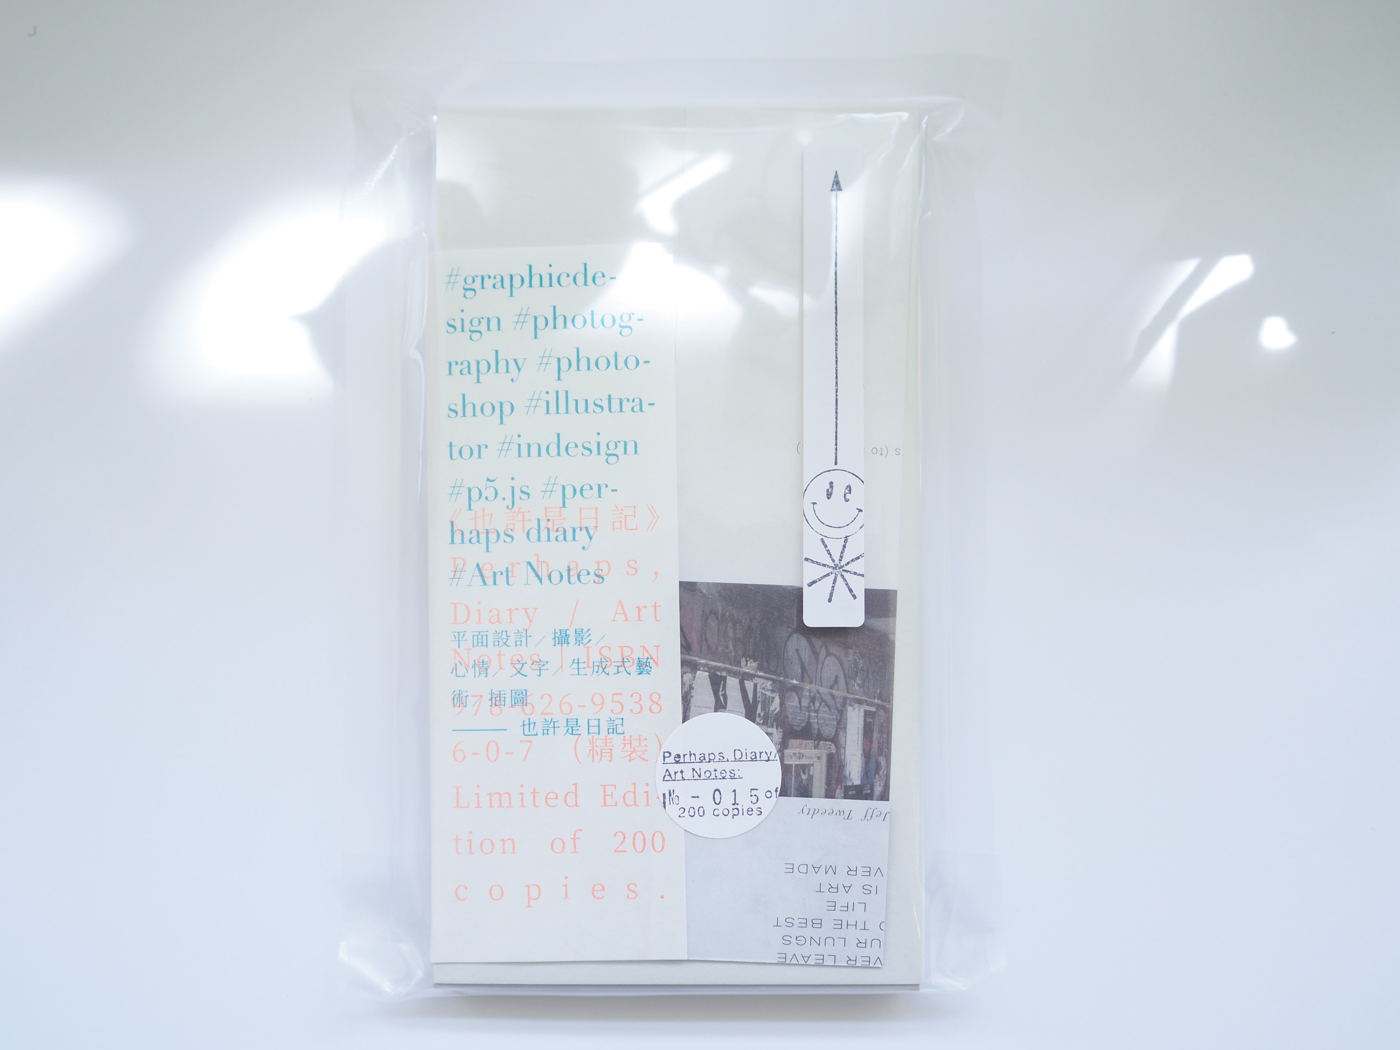 #graphicde-
sign #photog-
raphy #photo-
shop #illustra-
tor #indesign
#p5.js #per-
haps diary
#Art Notes
平面設計／攝影／
心情／文字／生成式藝
術／插圖
—— 也許是日記
《也許是日記》
Perhaps,
Diary / Art
Notes | ISBN
978-626-9538
6-0-7 （精裝）
Limited Edi-
tion of 200
copies.
Perhaps, Diary/
Art Notes:
№ - 015 of
200 copies
s (to
Jeff Tweedy
VER LEAVE
UR LUNGS
THE BEST
LIFE
IS ART
VER MADE